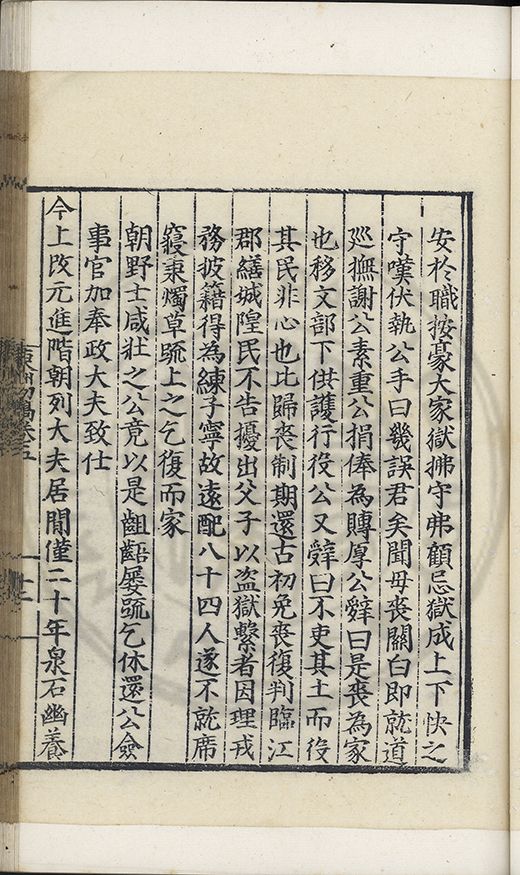 安於職按豪大家獄拂守弗顧忌獄成上下快之
守嘆伏執公手曰幾誤君矣聞母喪關白即就道
廵撫謝公素重公捐俸為賻厚公辭曰是喪為家
也移文部下供護行役公又辭曰不吏其土而役
其民非心也比歸喪制期還古初免喪復判臨江
郡繕城隍民不告擾出父子以盗獄繫者因理戎
務披籍得為練子寧故遠配八十四人遂不就席
寢秉燭草疏上之乞復而家
朝野士咸壯之公竟以是齟齬屡疏乞休還公僉
事官加奉政大夫致仕
今上改元進階朝列大夫居閒僅二十年泉石幽養